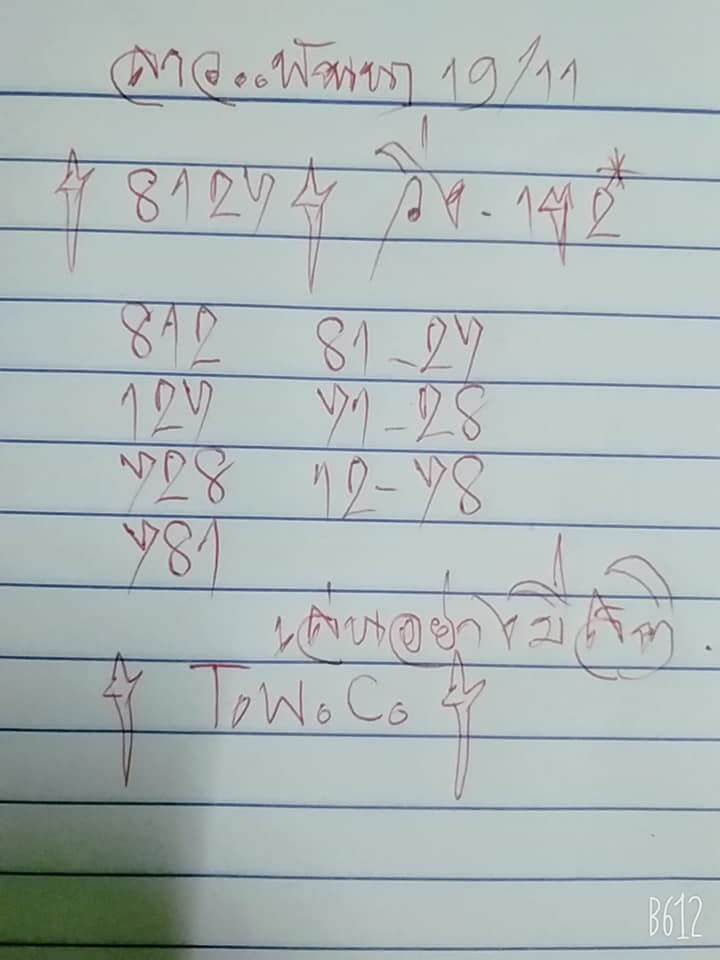 ลาว..พัฒนา 19/11
8127 วิ่ง - 1 2*
812 81-27
127 71-28
728 12-78
781
เล่นอย่างมีสติ.
T.W.C.
B612